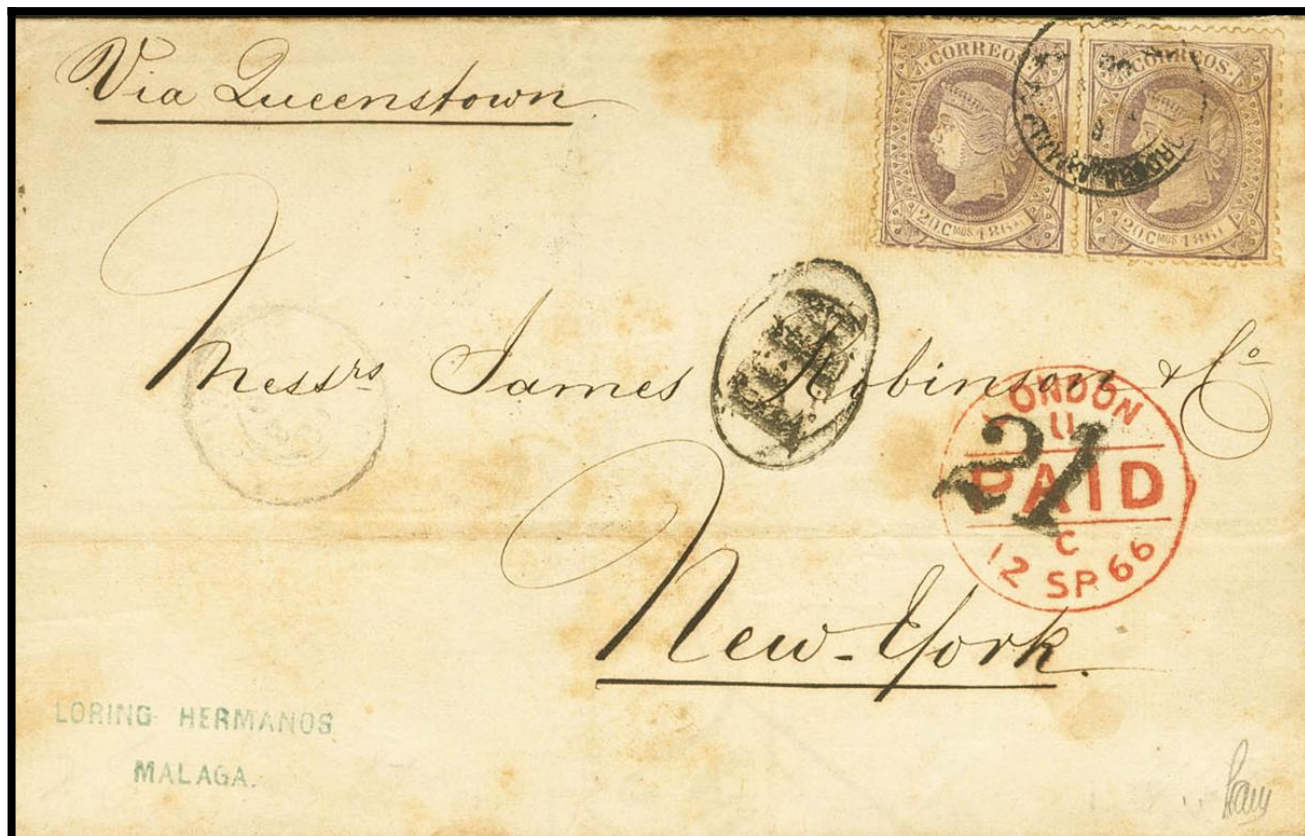 Via Queenstown
CORREOS
CORREOS
20 CMOS 1866
20 CMOS 1866
Messrs James Robinson & Co
LONDON
U
PAID
C
12 SP 66
21
New-York
LORING HERMANOS
MALAGA.